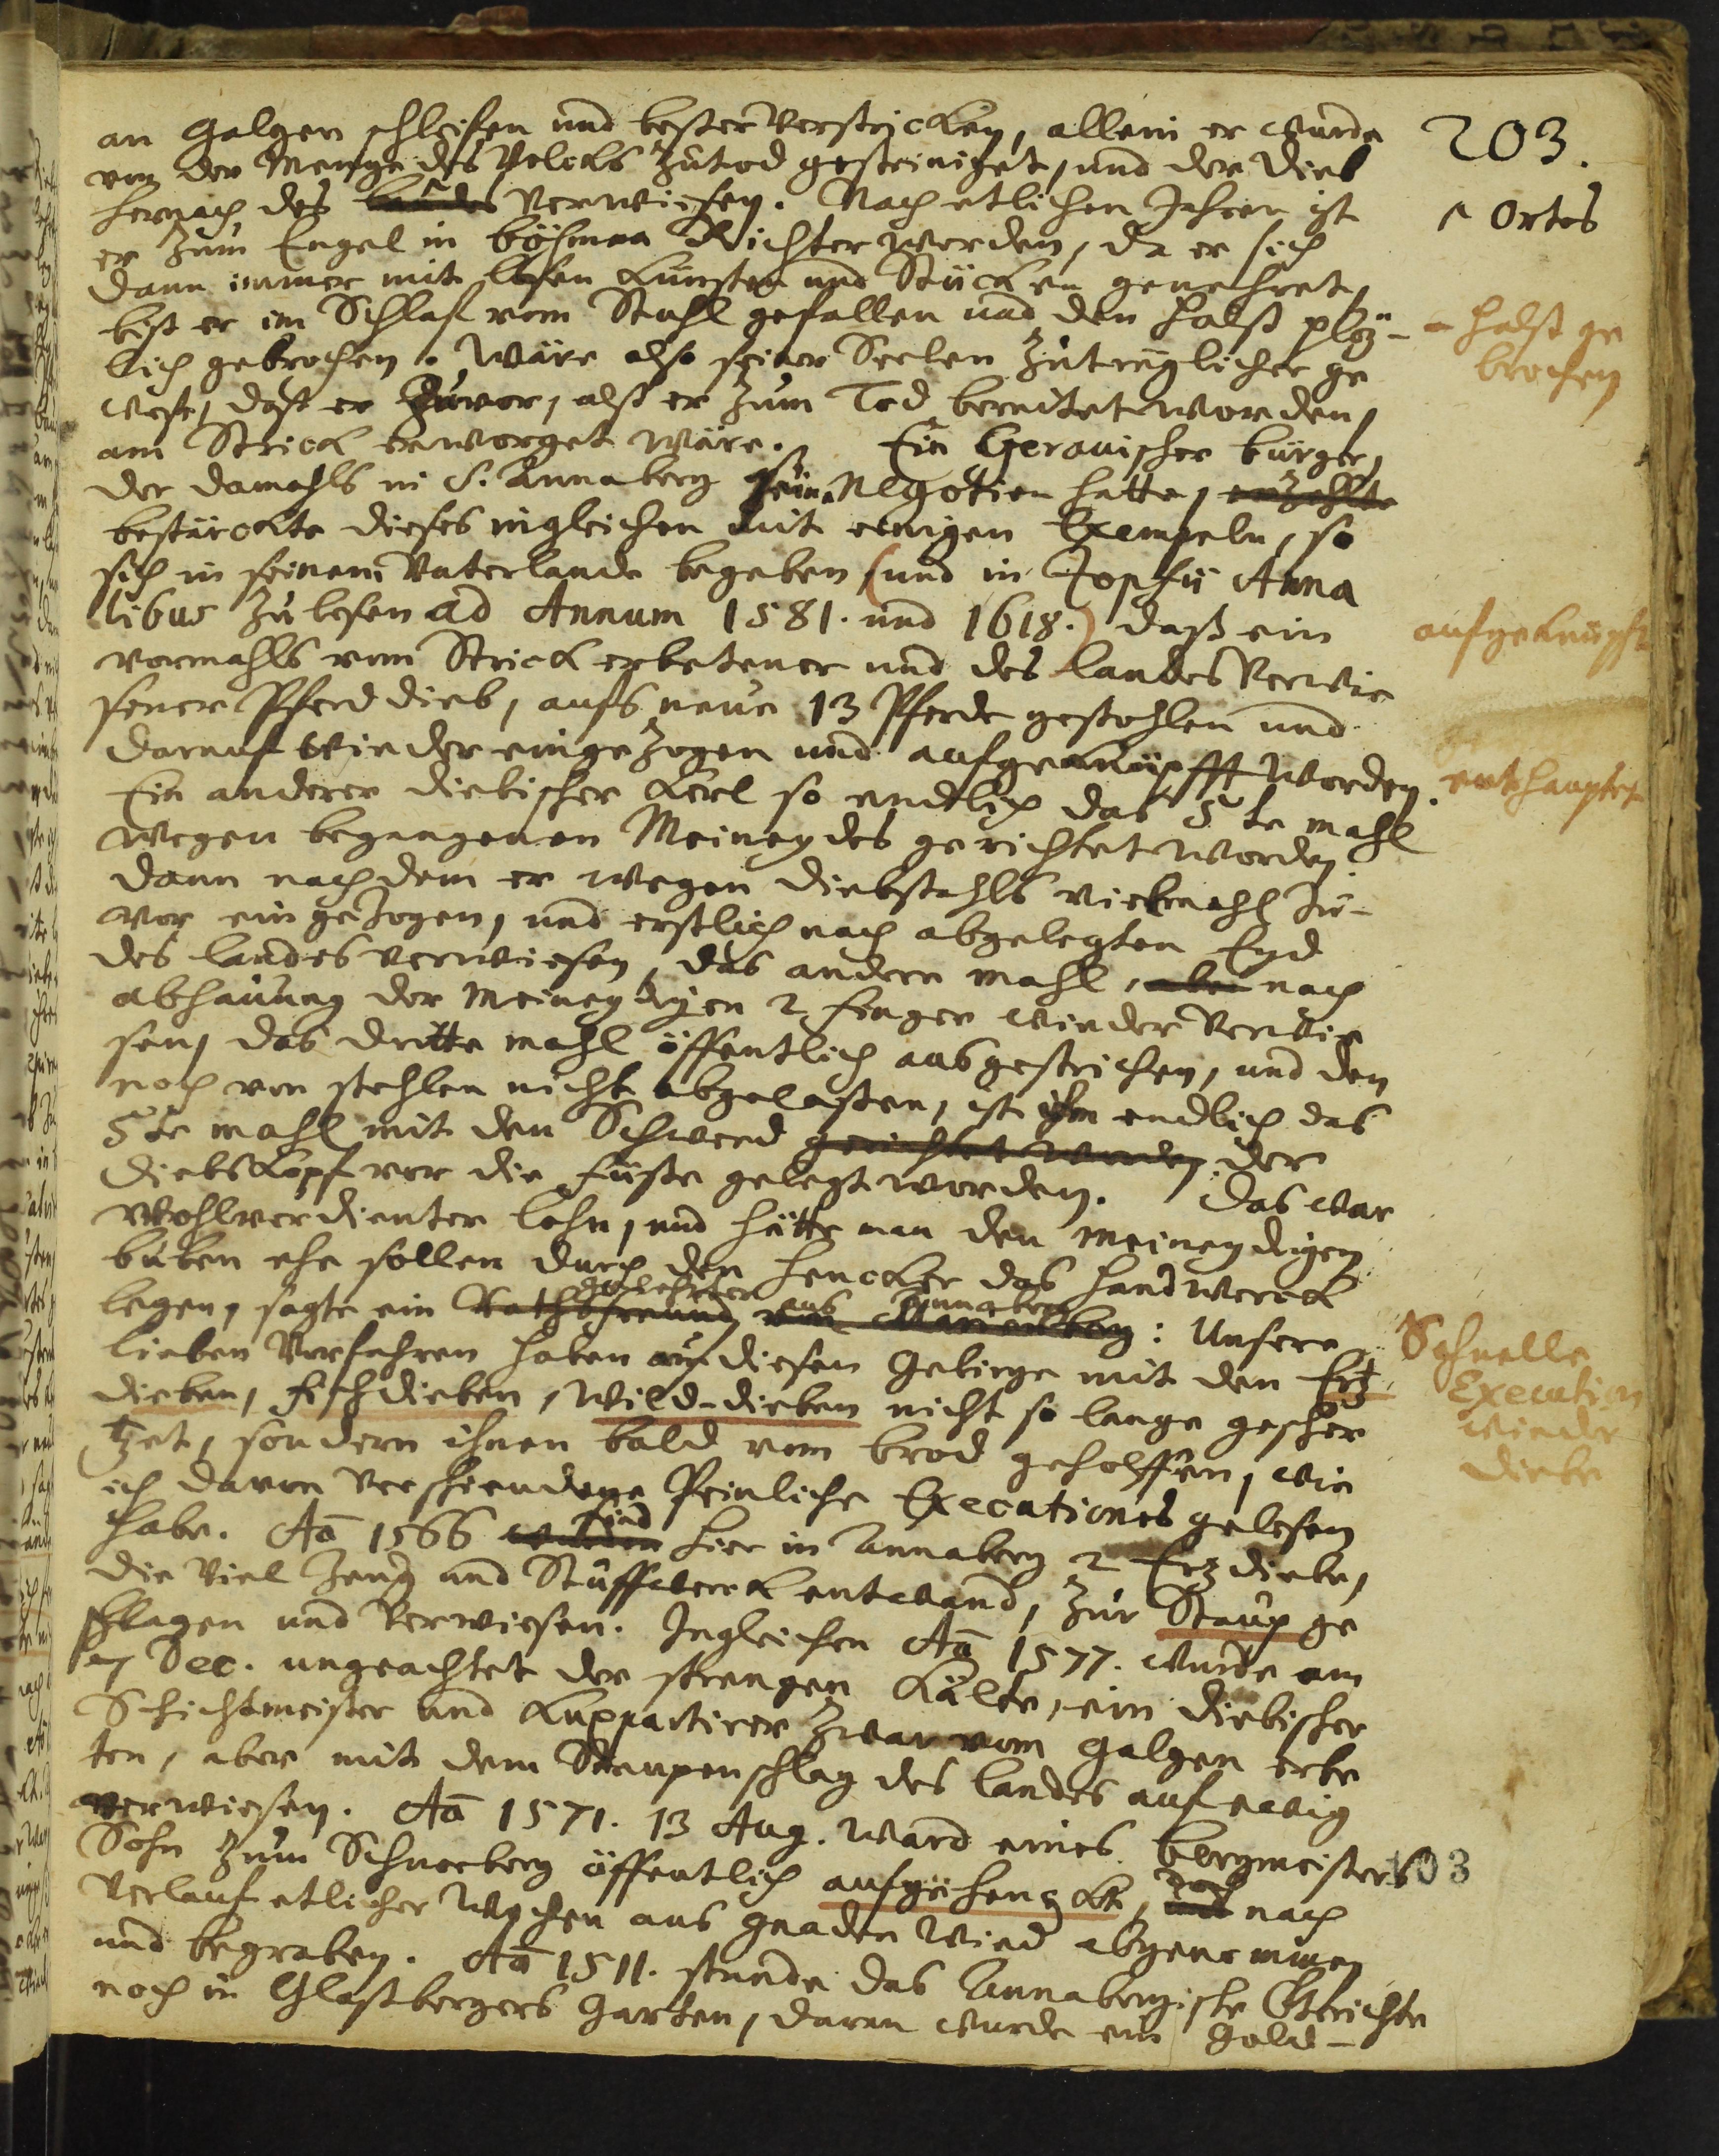 203.
an Galgen schleifen und bester verstricken, allein er wurde
von der Menge des Volcks zu tod gesteiniget, und der Dieb
hernach des Landes verwiesen. Nach etlichen Jahren ist
^ Ortes
er zum Engel in Böhmen Richter worden, da er sich
dann immer mit losen Künsten und Stücken genehret,
biß er im Schlaf vom Stuhl gefallen und den Halß plötz-
- Halß ge
brochen
lich gebrochen. Wäre also seiner Seelen zuträglicher ge
west, daß er zuvor, alß er zum Tod bereitet worden,
am Strick erworget wäre. Ein Gerauischer Bürger,
der damahls in S. Annaberg seine Negotien hatte, erzehlte
bestärckte dieses ingleichen mit einigen Exempeln, so
sich in seinem Vaterlande begeben (und in Zopfii Anna
libus zu lesen ad Annum 1581. und 1618.) daß ein
aufgeknüpft
vormahls vom Strick erbetener und des Landes verwie
sener Pferd dieb, aufs neue 13 Pferde gestohlen und
darauf wieder eingezogen und aufgeknüpfft worden.
enthauptet
Ein anderer diebischer Kerl so endlich das 5te mahl
wegen begangenen Meineydes gerichtet worden.
dann nach dem er wegen Diebstahls viermahl zu-
vor eingezogen, und erstlich nach abgelegten Eyd
des Landes verwiesen, das andere mahl, aber nach
abhauung der Meineydigen 2 Finger wieder verwie
sen, das dritte mahl öffentlich ausgestrichen, und den
noch von stehlen nicht abgelassen, ist ihm endlich das
5te mahl mit den Schwerd gerichtet worden. der
Diebs Kopf vor die Füsse gelegt worden. Das war
wohlverdienter Lohn, und hätte man den Meineydigen
buben ehe sollen durch den Hencker das Handwerck
gelehrter aus Annaberg
legen, sagte ein Rathsfreund von Marienberg: Unsere
Schnelle
Execution
wieder
diebe
lieben Vorfahren haben auf diesen Gebirge mit den Ertz
dieben, Fischdieben, Wild-dieben nicht so lange gescher
tzet, sondern ihnen bald vom brod geholffen, wie
ich davon verschiendene Peinliche Executiones gelesen
sind
habe. Ao 1566 wurden hier in Annaberg 2 Ertz diebe,
die viel Zeug und Stuffwerck entwand, zur Staup ge
schlagen und verwiesen. Ingleichen Ao 1577. wurde am
7 Dec. ungeachtet der strengen Kälte, ein diebischer
Schichtmeister und Kuxpartirer zwar vom Galgen erbe
ten, aber mit dem Staupenschlag des Landes auf ewig
verwiesen. Ao 1571. 13 Aug. ward eines Bergmeisters
103
Sohn zum Schneeberg öffentlich aufgehenckt, und nach
verlauf etlicher Wochen aus Gnaden wied abgenommen
und begraben. Ao 1511. stunde das Annabergische Gerichte
noch in Glaßbergers Garten, daran wurde ein Gold-